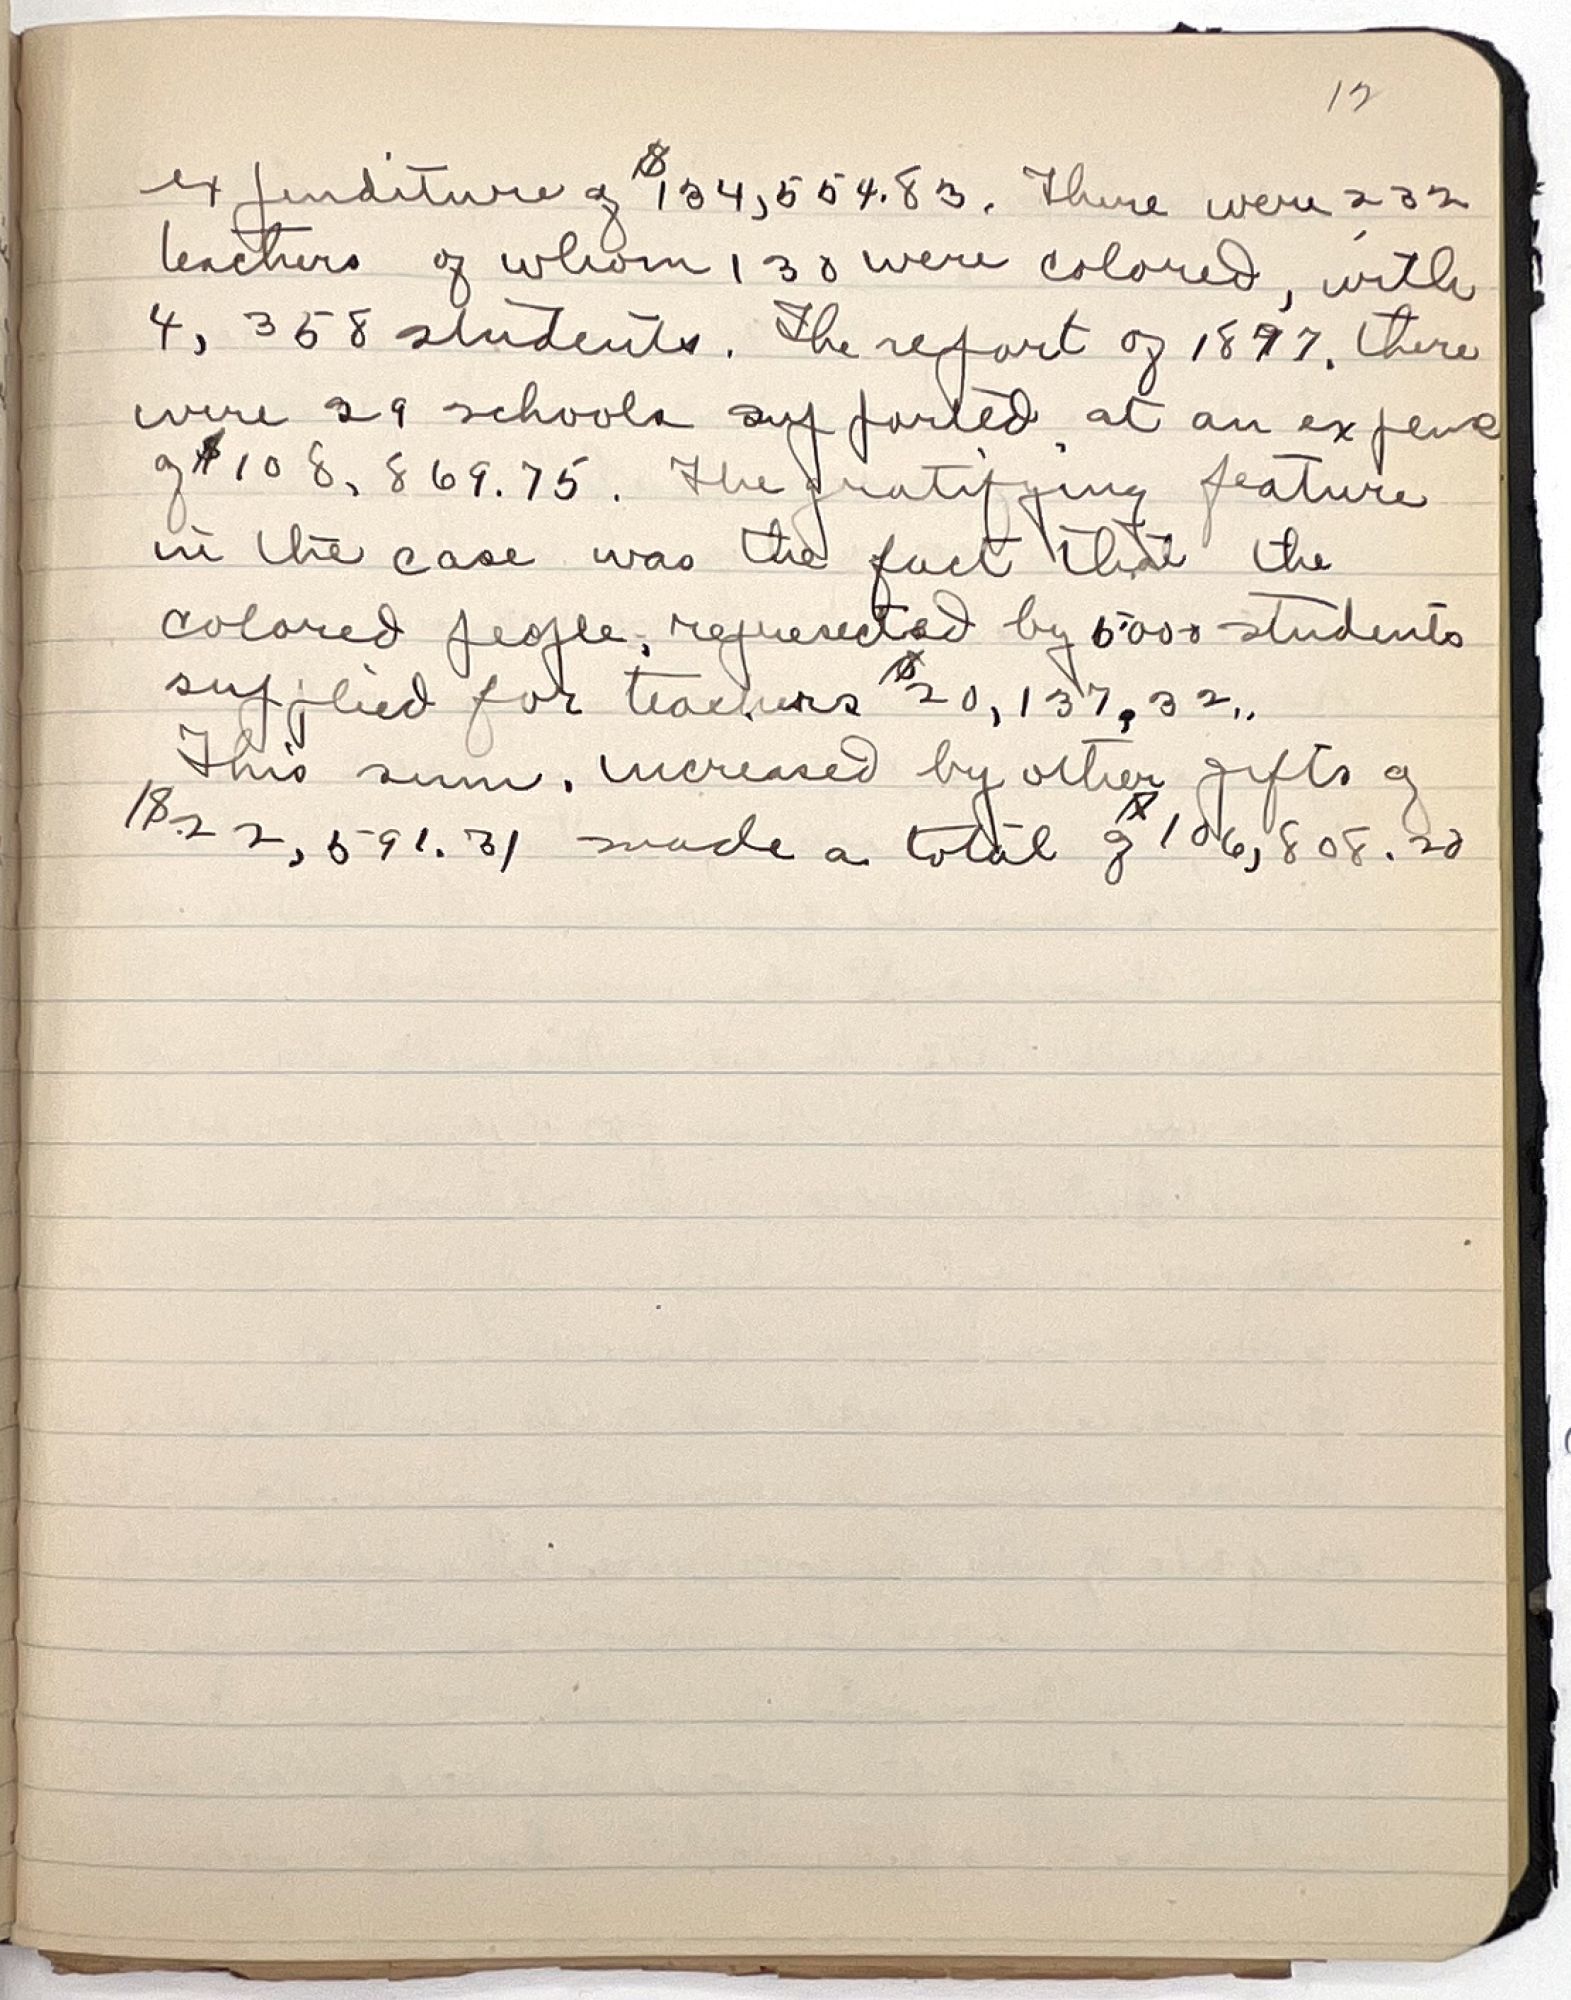 17
expenditure of $134,554.83. There were 232
teachers of whom 130 were colored, with
4,358 students. The report of 1897, there
were 29 schools supported, at an expense
of $108,869.75. The gratifying feature
in the case was the fact that the
colored people, represected by 5000 students
supplied for teachers $20,137,32..
This sum, increased by other gifts of
$22,591.31 made a total of $106,808.20